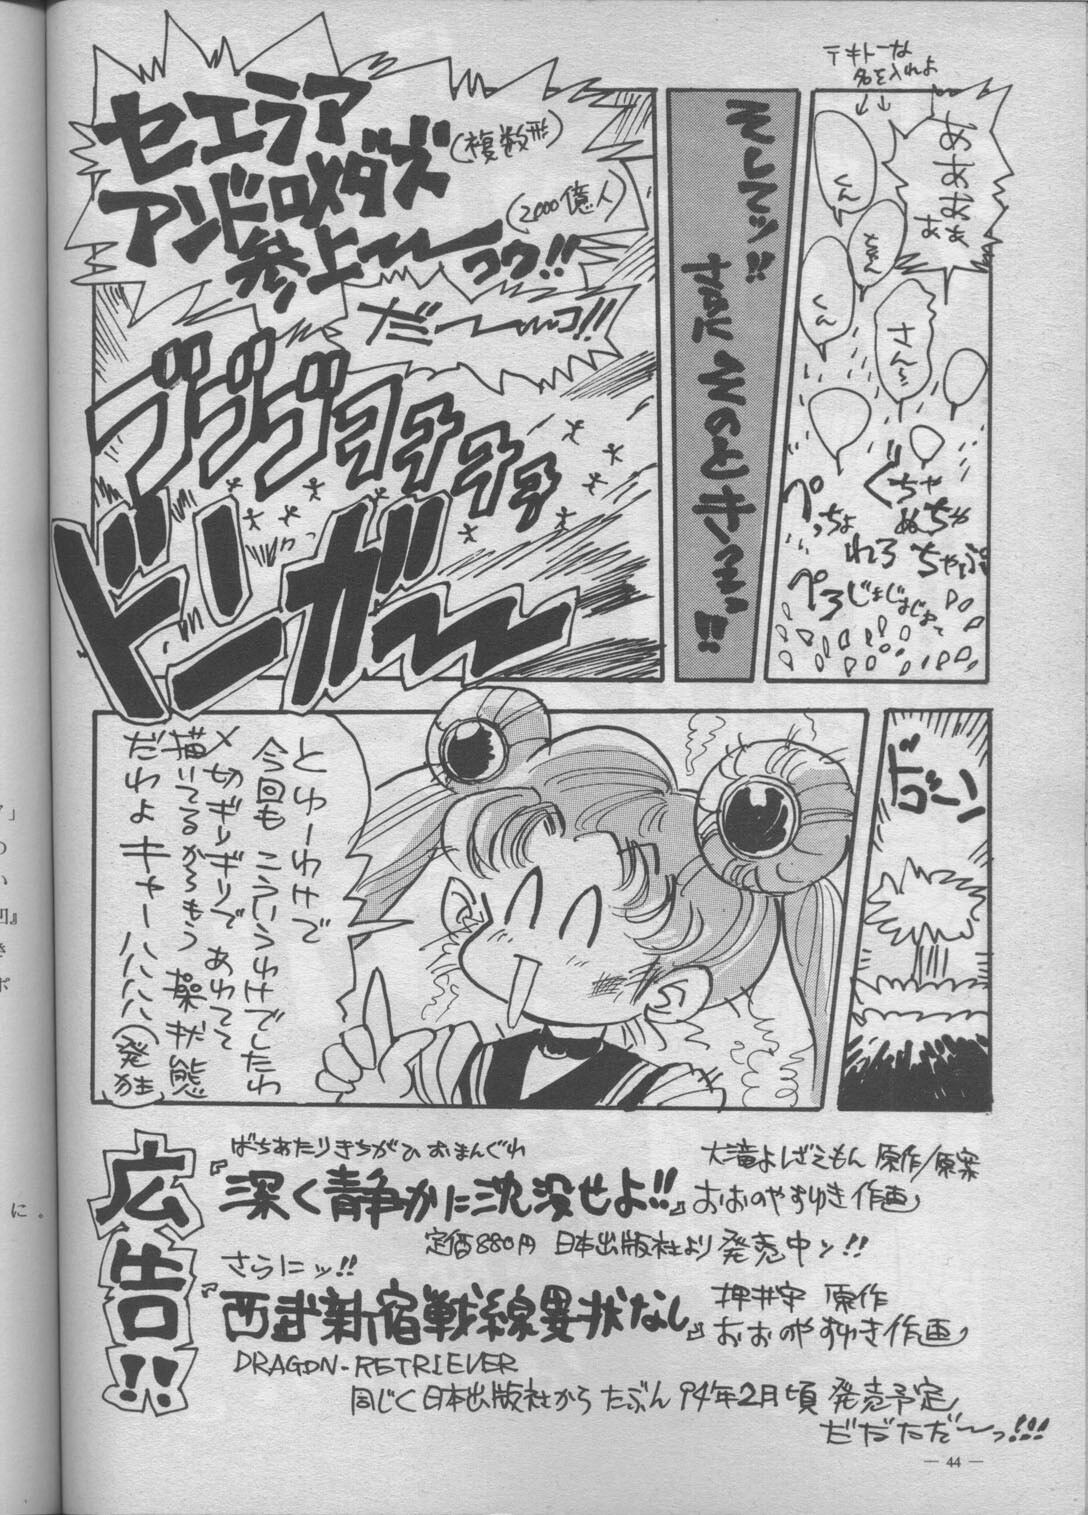 テキトーな
名を入れよ
↓↓
あああぁ
ぁ
くん
ちゃん
くん
さん〜
ぐちゃ
ぬちゃ
ぺっちょ
れろ
ちゃぷ
ぺろ
じょじょじょ〜
そしてッ!!
まさにそのときっっ!!
セエラア
アンドロメダズ(複数形)
(2000億人)
参上〜〜っっ!!
だ〜〜っ!!
ゴゴゴゴヨヨヨヨ
ドンガ〜
ボゴーン
とゆーわけで
今回も こういうわけでしたわ
〆切ギリギリで あわてて
描いてるから〜もう 操状態
だわよ キャーハハハハ(発狂)
広告!!
ばちあたりきちがひおまんぐわ
『深く静かに沈没せよ!!』
大滝よしざえもん 原作/原案
おおのやすゆき 作画
定価880円 日本出版社より 発売中ッ!!
さらにッ!!
『西武新宿戦線異状なし』
押井守 原作
おおのやすゆき 作画
DRAGON-RETRIEVER
同じく日本出版社から たぶん 94年2月頃 発売予定
だだただ〜っ!!!
— 44 —